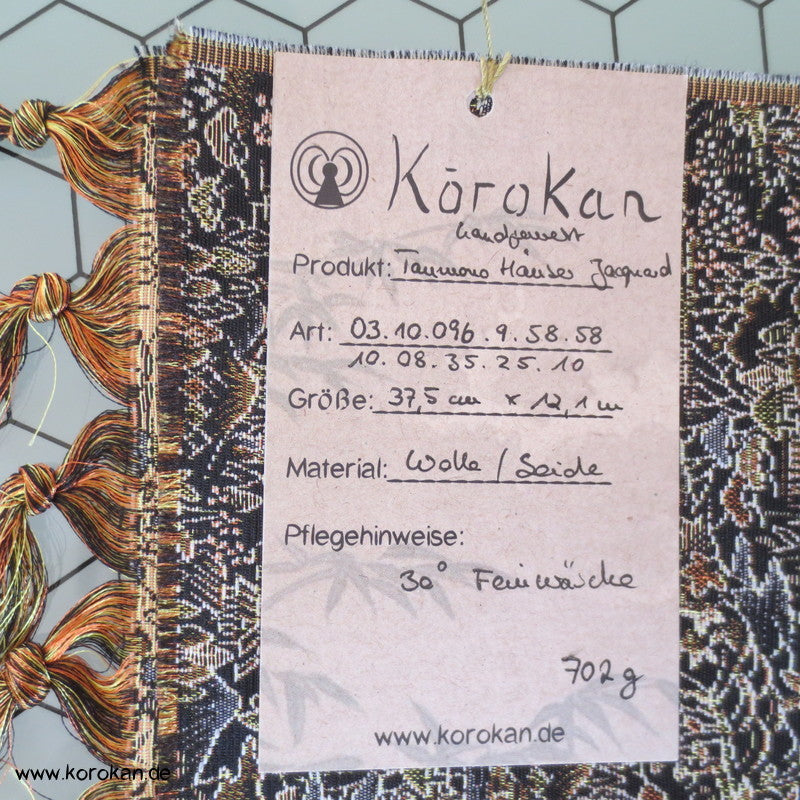 Kōrokan
handgewebt
Produkt: Tanmono Häuser Jacquard
Art: 03.10.096.9.58.58
10.08.35.25.10
Größe: 37,5 cm x 12,1 m
Material: Wolle / Seide
Pflegehinweise:
30° Feinwäsche
702 g
www.korokan.de
www.korokan.de